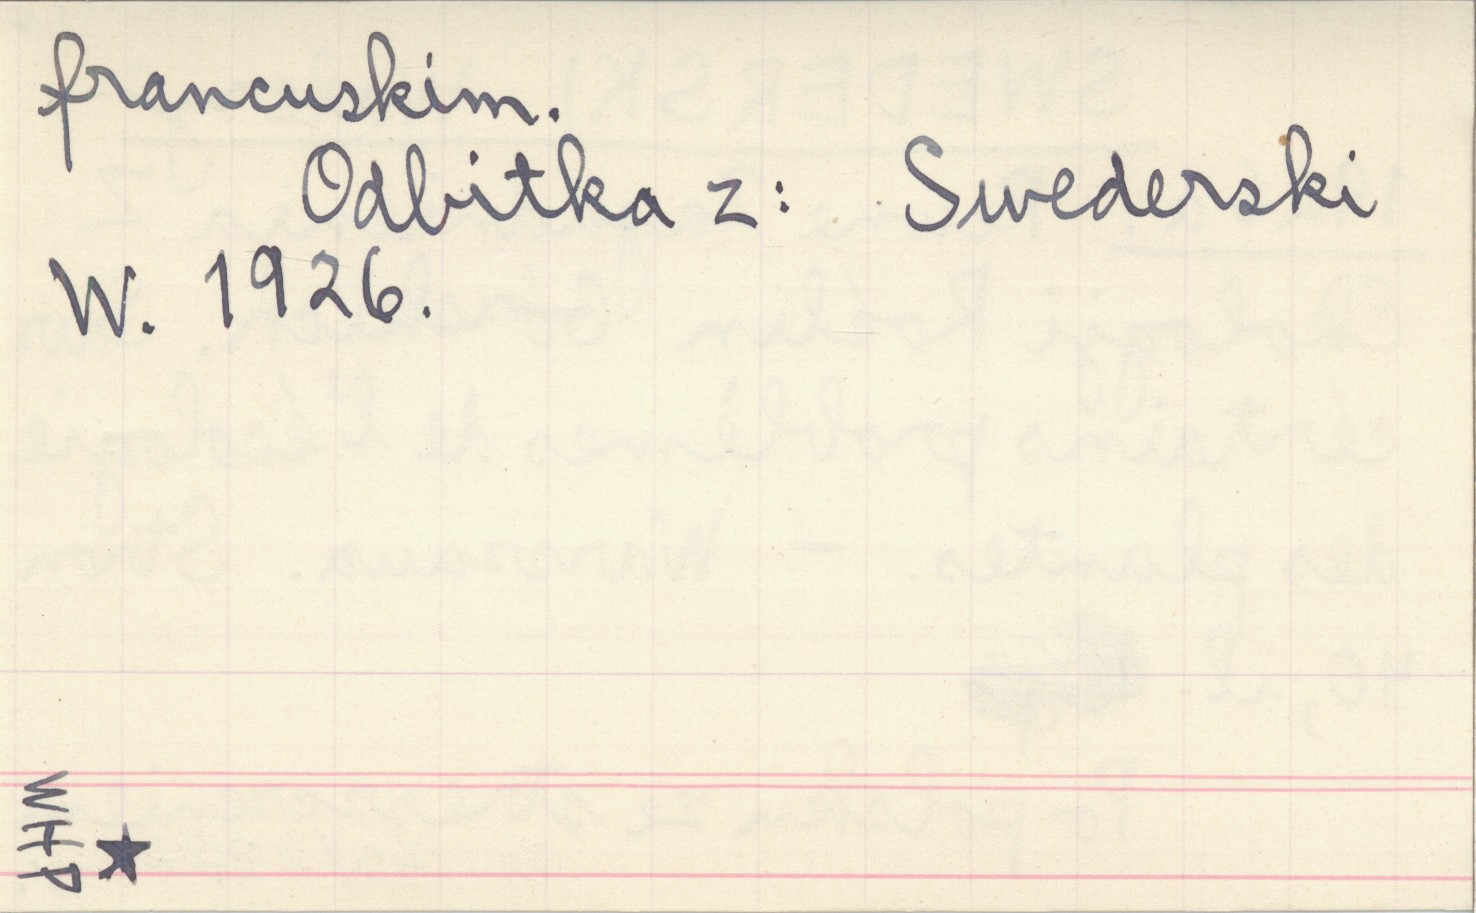 francuskim.
Odbitka z: Swederski
W. 1926.
WHP